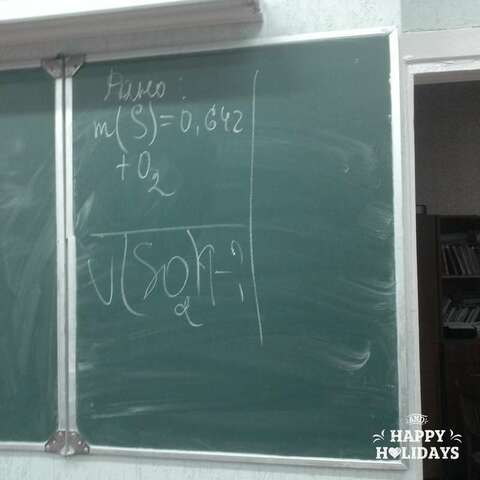 Дано:
m(S)=0,642
+ O₂
V(SO₂)-?
AND
HAPPY
HOLIDAYS